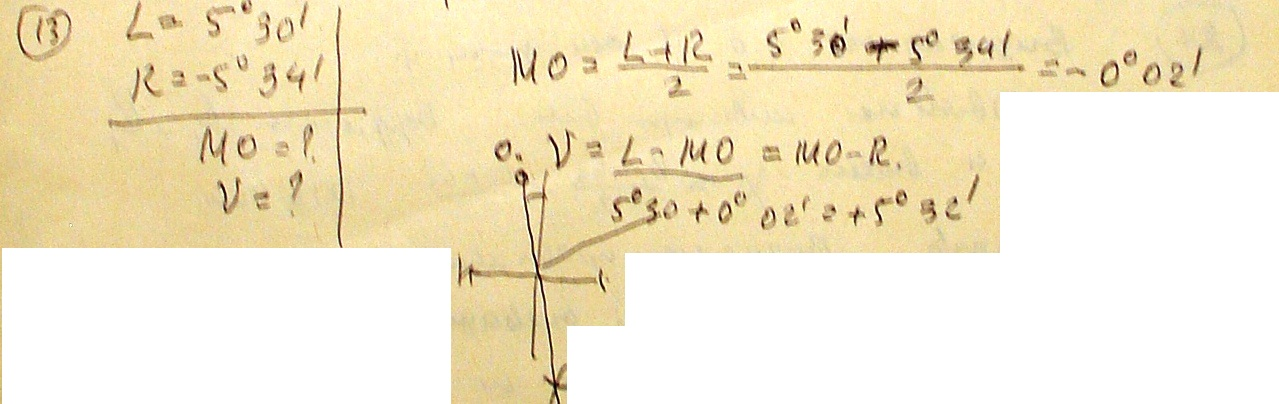 (13)
L = 5°30'
R = -5°34'
MO = ?
V = ?
MO = (L+R)/2 = (5°30' - 5°34')/2 = - 0°02'
V = L - MO = MO - R.
5°30 + 0°02' = +5°32'